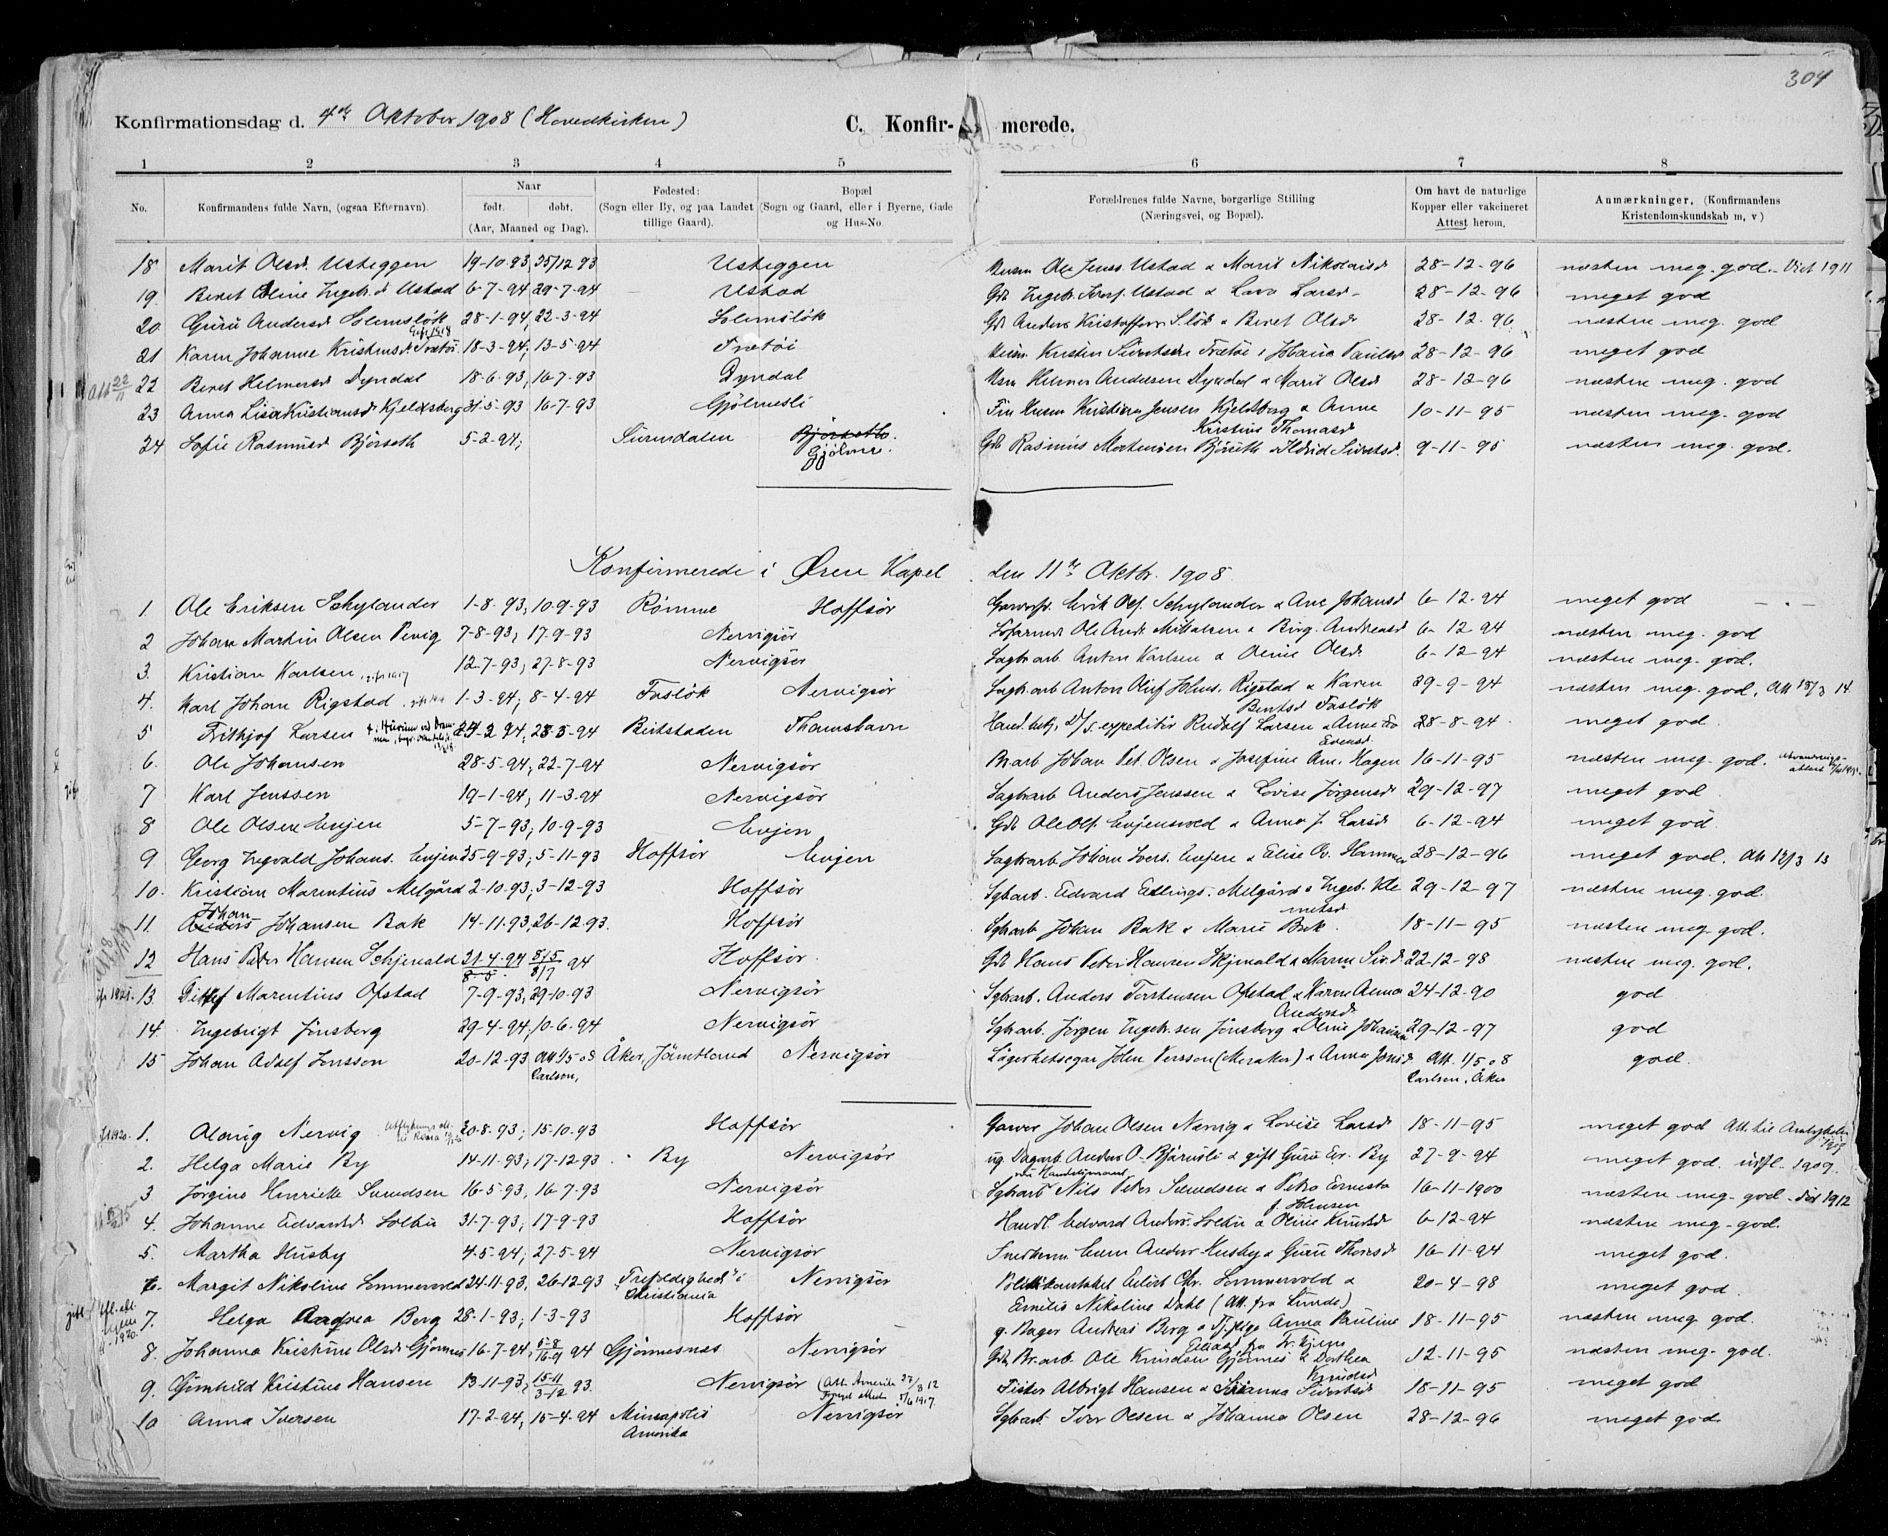 304
Konfirmationsdag d. 4de Oktober 1908 (Hovedkirken) C. Konfirmerede.
1 2 3 4 5 6 7 8
No. Konfirmandens fulde Navn, (ogsaa Efternavn). Naar født. døbt. (Aar, Maaned og Dag). Fødested: (Sogn eller By, og paa Landet tillige Gaard). Bopæl (Sogn og Gaard, eller i Byerne, Gade og Hus-No. Forældrenes fulde Navne, borgerlige Stilling (Næringsvei, og Bopæl). Om havt de naturlige Kopper eller vakcineret Attest herom. Anmærkninger, (Konfirmandens Kristendomskundskab m, v)
18 Marit Olsd. Usteggen 19-10-93 25/12 93 Usteggen Husm Ole Jenss. Ustad & Marit Nikolaisd 28-12-96 næsten meg. god - Död 1911
19. Beret Oline Ingebr.d Ustad 6-7-94 29-7-94 Ustad Gdb Ingebr. Ustad & Lava Larsd - 28-12-96 meget god
20 Guru Andersd Solemsløk 28-1-94, 22-3-94 Solemsløk Gdb Anders Kristoffers. Sløk & Beret Olsd 28-12-96 næsten meg. god
21 Karen Johanne Kristensd. Trætöi 18-3-94; 13-5-94 Trætöi Husm. Kristen Sivertsen Trætöi & Johanna Paulsd 28-12-96 meget god
22 Beret Helmersd Dyndal 18-6.93, 16-7-93 Dyndal Husm Helmer Andersen Dyndal & Marit Olsd 28-12-96 næsten meg. god
23 Anna Lisa Kristiansd Kjeldsberg 31-5-93 16-7-93 Gjölmesli Husm Kristian Jensen Kjeldsberg & Anne Kristine Thomasd 10-11-95 næsten meg. god
24 Sofie Rasmusd Björseth 5-2-94; Surendalen Björseth. Gjölme. Gdb Rasmus Mortensen Björseth & Ildrid Sivertsd. 9-11-95 næsten meg. god.
Konfirmerede i Øren Kapel den 11te Oktbr. 1908
1. Ole Eriksen Schylander 1-8-93, 10-9-93 Rømme Hoffsör Erik Ols. Schylander & Ane Johansd 6-12-94 meget god - . -
2 Johan Martin Olsen Venig 7-8-93; 17-9-93 Nervigsör Ole Andr. & Birg. Andreasd 6-12-94 næsten meg. god
3. Kristian Karlsen 12-7-93; 27-8-93 Nervigsör Sagbr.arb Anton Karlsen & Oline Olsd. 6-12-94 næsten meg. god.
4. Karl Johan Rigstad 1-3-94; 8-4-94 Fasløk Nervigsör Sagbr.arb Anton Oluf Johns. Rigstad & Karen Bentsd Fasløk 29-9-94 næsten meg. god. Att 18/3 14.
5 Frithjof Larsen 24-2 94, 28-3-94 Birkstaden Thamshavn D/s. expeditör Rudolf Larsen & Anne Evensd 28-8-94. meget god.
6. Ole Johansen 28-5-94, 22-7-94 Nervigsör Br.arb Johan Pet. Olsen & Josefine Am. Hagen 16-11-95 næsten meg. god.
7 Karl Jenssen 19-1-94; 11-3-94 Nervigsör Sagbr.arb Anders Jenssen & Lovise Jörgensd 29-12-97 meget god
8 Ole Olsen Evjen 5-7-93; 10-9-93 Evjen Gdb Ole Ols. Evjensved & Anna J. Larsd 6-12-94 meget god.
9 Georg Ingvald Johans. Evjen 25-9-93; 5-11-93 Hoffsör Evjen Sagbr.arb Johan Ivers. Evjen & Elise Ov. Hammer 28-12-96 meget god. Att 12/3 13
10. Kristian Marentius Melgård 2-10-93; 3-12-93 Hoffsör Sgbr.arb. Edvard Edlings. Melgård & Ingeb. Klemetsd 29-12-97 næsten meg. god.
11. Anders Johan Johansen Bak 14-11-93, 26-12-93. Hoffsör Sgbr.arb Johan Bak & Marie Bak. 18-11-95 næsten meg. god.
12 Hans Peter Hansen Schjenald 21-4-94 8-5- 8/7 94 Hoffsör. Gdb Hans Peter Hansen Skjenald & Maren Siv.d 22-12-98 næsten meg. god.
13. Detlef Marentius Opstad 7-9-93, 29-10-93 Nervigsör Sgbr.arb. Anders Torstensen Opstad & Karen Anna Andersd 24-12-90 god
14. Ingebrigt Jönsberg 29-4-94, 10-6-94 Nervigsör Sgbr.arb. Jörgen Ingebr.sen Jönsberg & Oline Johanna 29-12-97 god
15 Johan Adolf Jonsson 20-12-93 Att 1/5 08 Carlson, Åker, Jämtland Nervigsör Lägenhetsegar John Persson (Meraker) & Anna Jonsd Att. 1/5 08 Carlsen, Åker god.
1. Olaug Nervig 20-8-93; 15-10-93 Hoffsör Garver Johan Olsen Nervig & Lovise Larsd 18-11-95 meget god
2. Helga Marie By 14-11-93; 17-12-93 By Nervigsör ug Dagarb Anders O. Bjärnsli & gift Guru Er. By 27-9-94 meget god. utfl. 1909.
3 Jörgine Henriette Svendsen 16-5-93, 16-7-93 Nervigsör Sgbr.arb Nils Peter Svendsen & Petra Ernesta f. Johnsen 16-11-1900 næsten meg. god - död 1912
4. Johanne Edvardsd Solbu 31-7-93; 17-9-93 Hoffsör Handl Edvard Anders. Solbu & Oline Knutsd 6-12-94 næsten meg. god.
5. Martha Husby 4-5-94; 27-5-94 Nervigsör Even Anders Husby & Guru Thoresd 16-11-94 meget god.
6. Margit Nikoline Sommervold 24-11-93, 26-12-93 "Trefoldighed" i Christiania Nervigsör Eilert Chr. Sommervold & Emilie Nikoline Dahl (Att. fra Lunde) 20-4-98 meget god.
7. Helga Andrea Berg 28-1-93; 1-3-93 Hoffsör g. Bager Andreas Berg & Tj.pige Anna Pauline 18-11-95 næsten meg. god.
8. Johanna Kristine Olsd Gjönnes 16-7-94, 5-8 16-9 94 Gjönnesnes Nervigsör Br.arb. Ole Knudsen Gjönnes & Dorthea Knudsd 12-11-95 næsten meg. god.
9. Gunhild Kristine Hansen 13-11-93; 15-11 3-12 93. Nervigsör Fisker Albrigt Hansen & Susanna Sivertsd 18-11-95 meget god
10 Anna Iversen 17-2-94; 15-4-94 Mineapolis Amerika Nervigsör Sgbr.arb Iver Olsen & Johanna Olsen 28-12-96 meget god